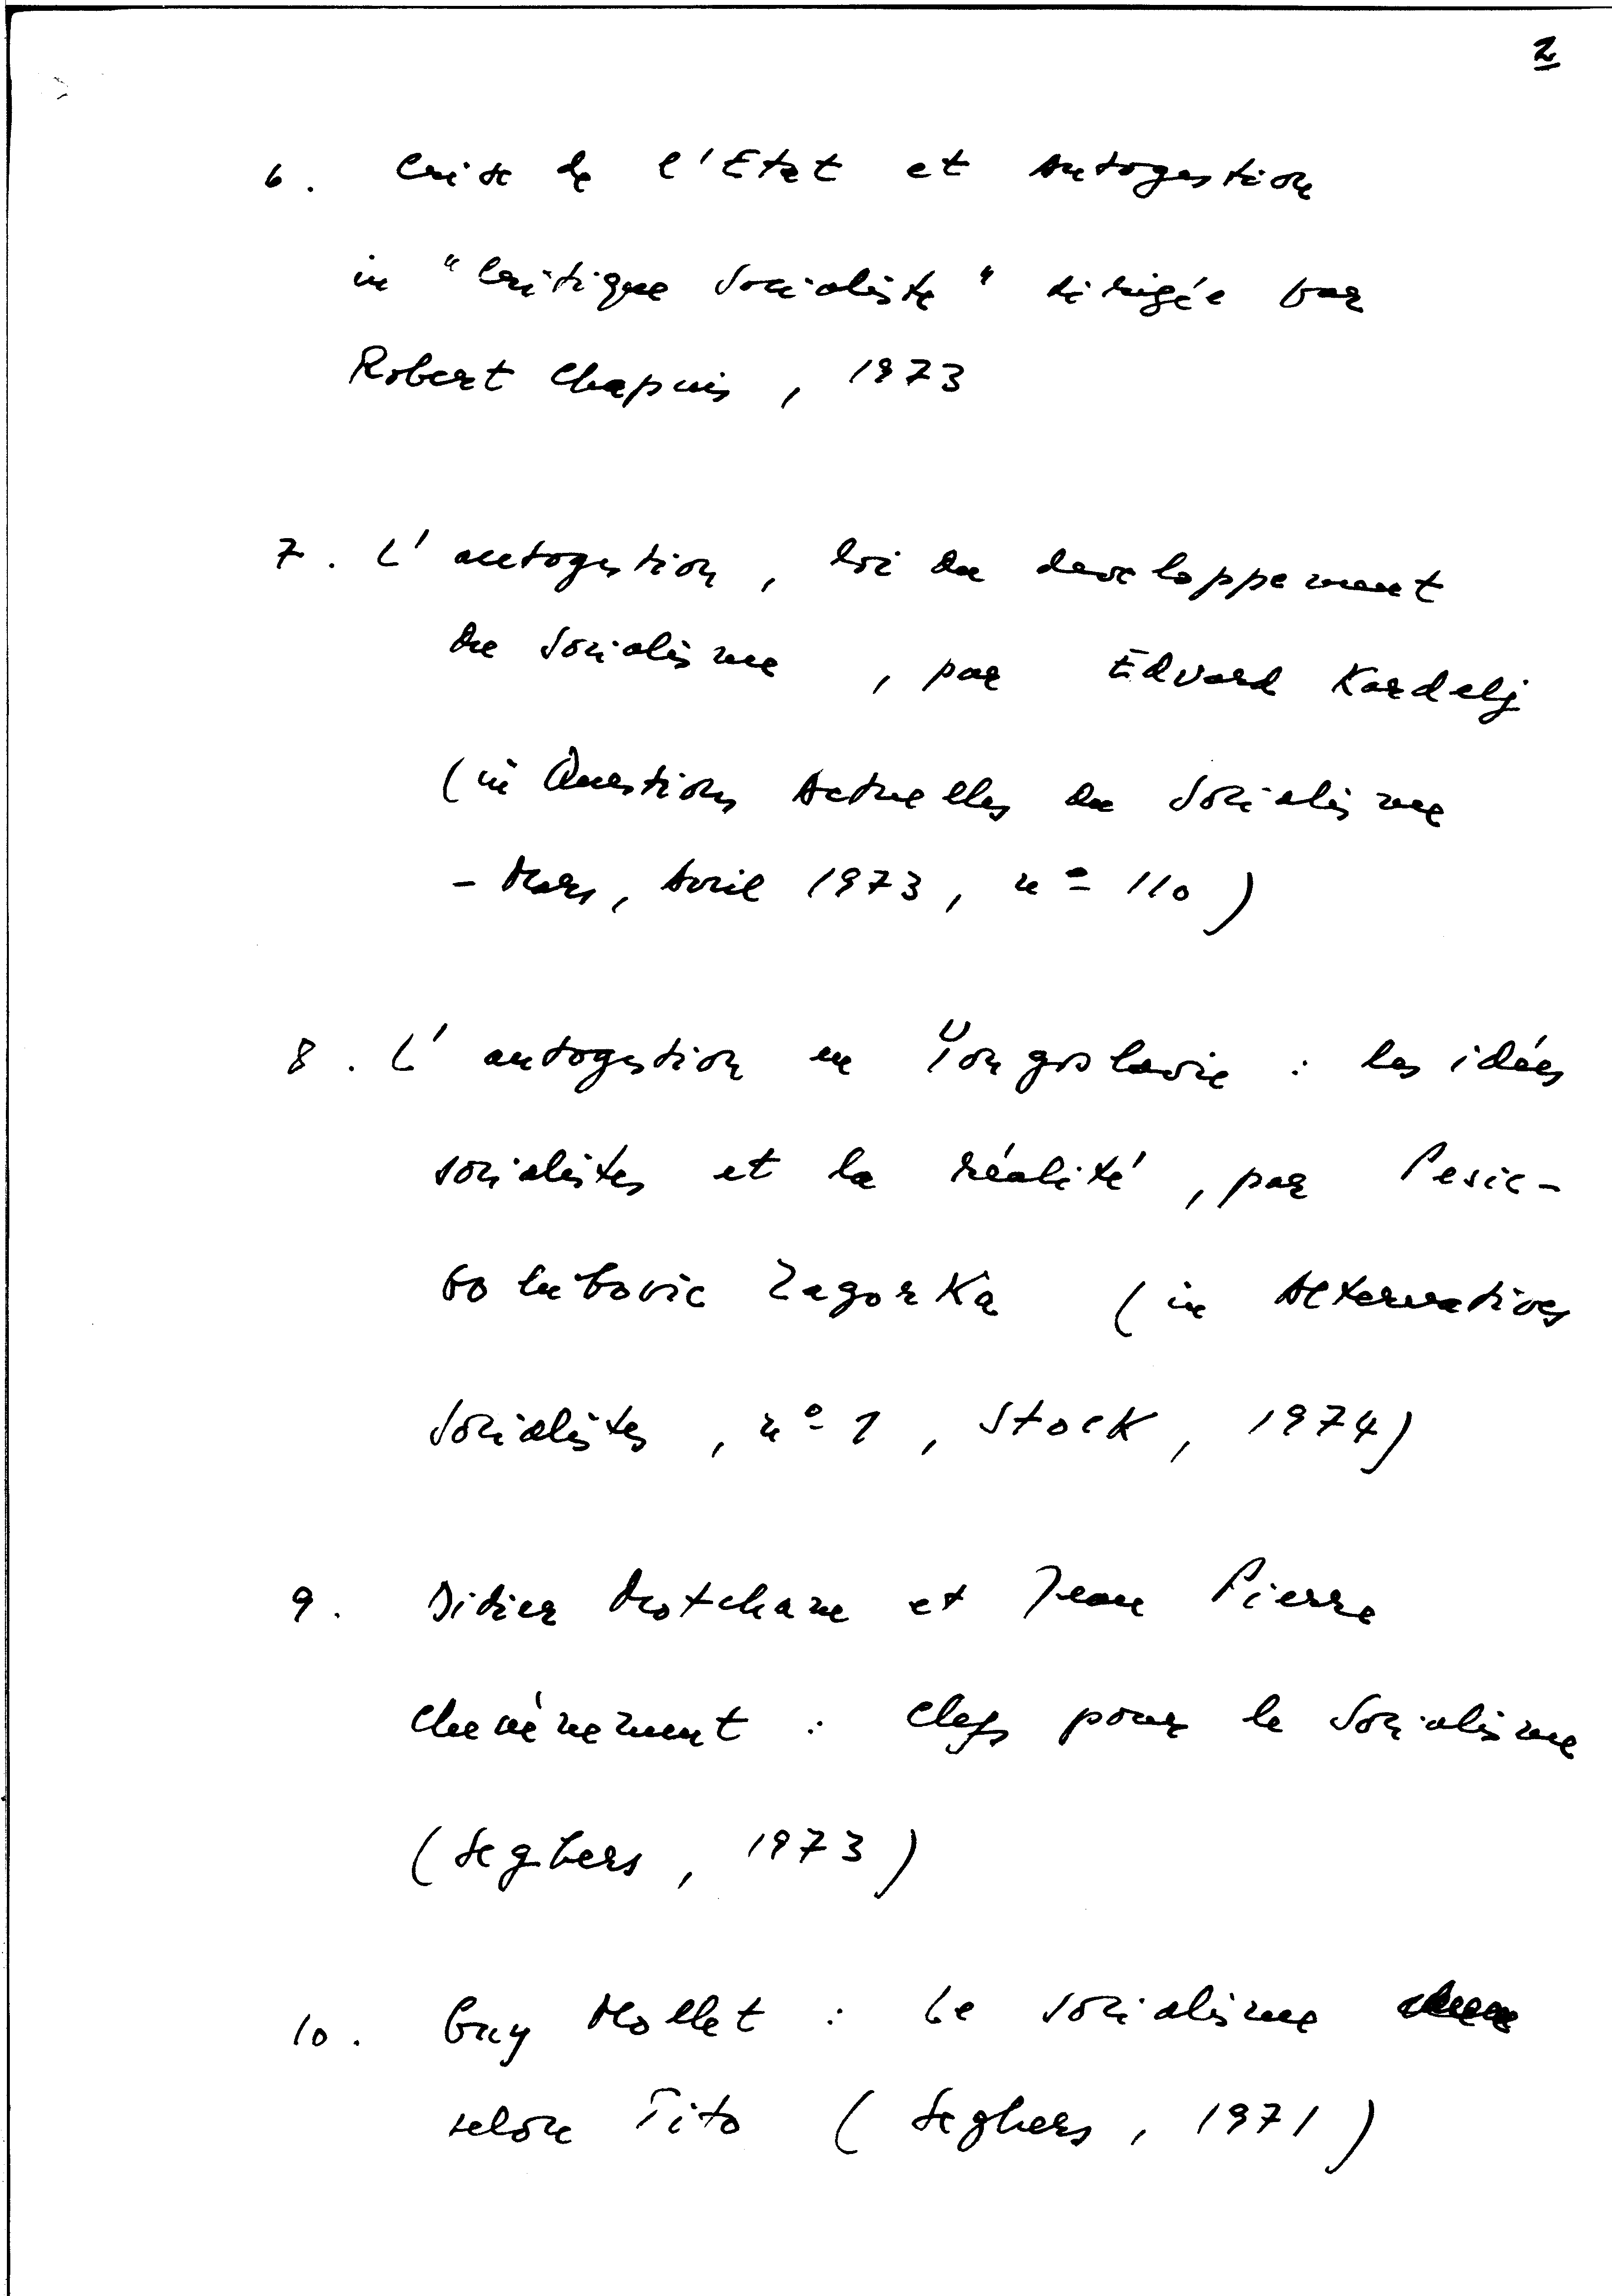 2
6. Crise de l'Etat et Autogestion
in "Critique Socialiste" dirigée par
Robert Chapuis, 1973
7. L'autogestion, loi du developpement
du Socialisme, par Edvard Kardelj
(in Questions Actuelles du Socialisme
- Mars, Avril 1973, nº 110)
8. L'autogestion en Yougoslavie : les idées
socialistes et la réalité, par Pesic-
Golubovic Zagorka (in Alternatives
Socialistes, nº 1, Stock, 1974)
9. Didier Motchane et Jean Pierre
Chevènement : Clefs pour le Socialisme
(Seghers, 1973)
10. Guy Mollet : Le Socialisme
selon Tito (Seghers, 1971)